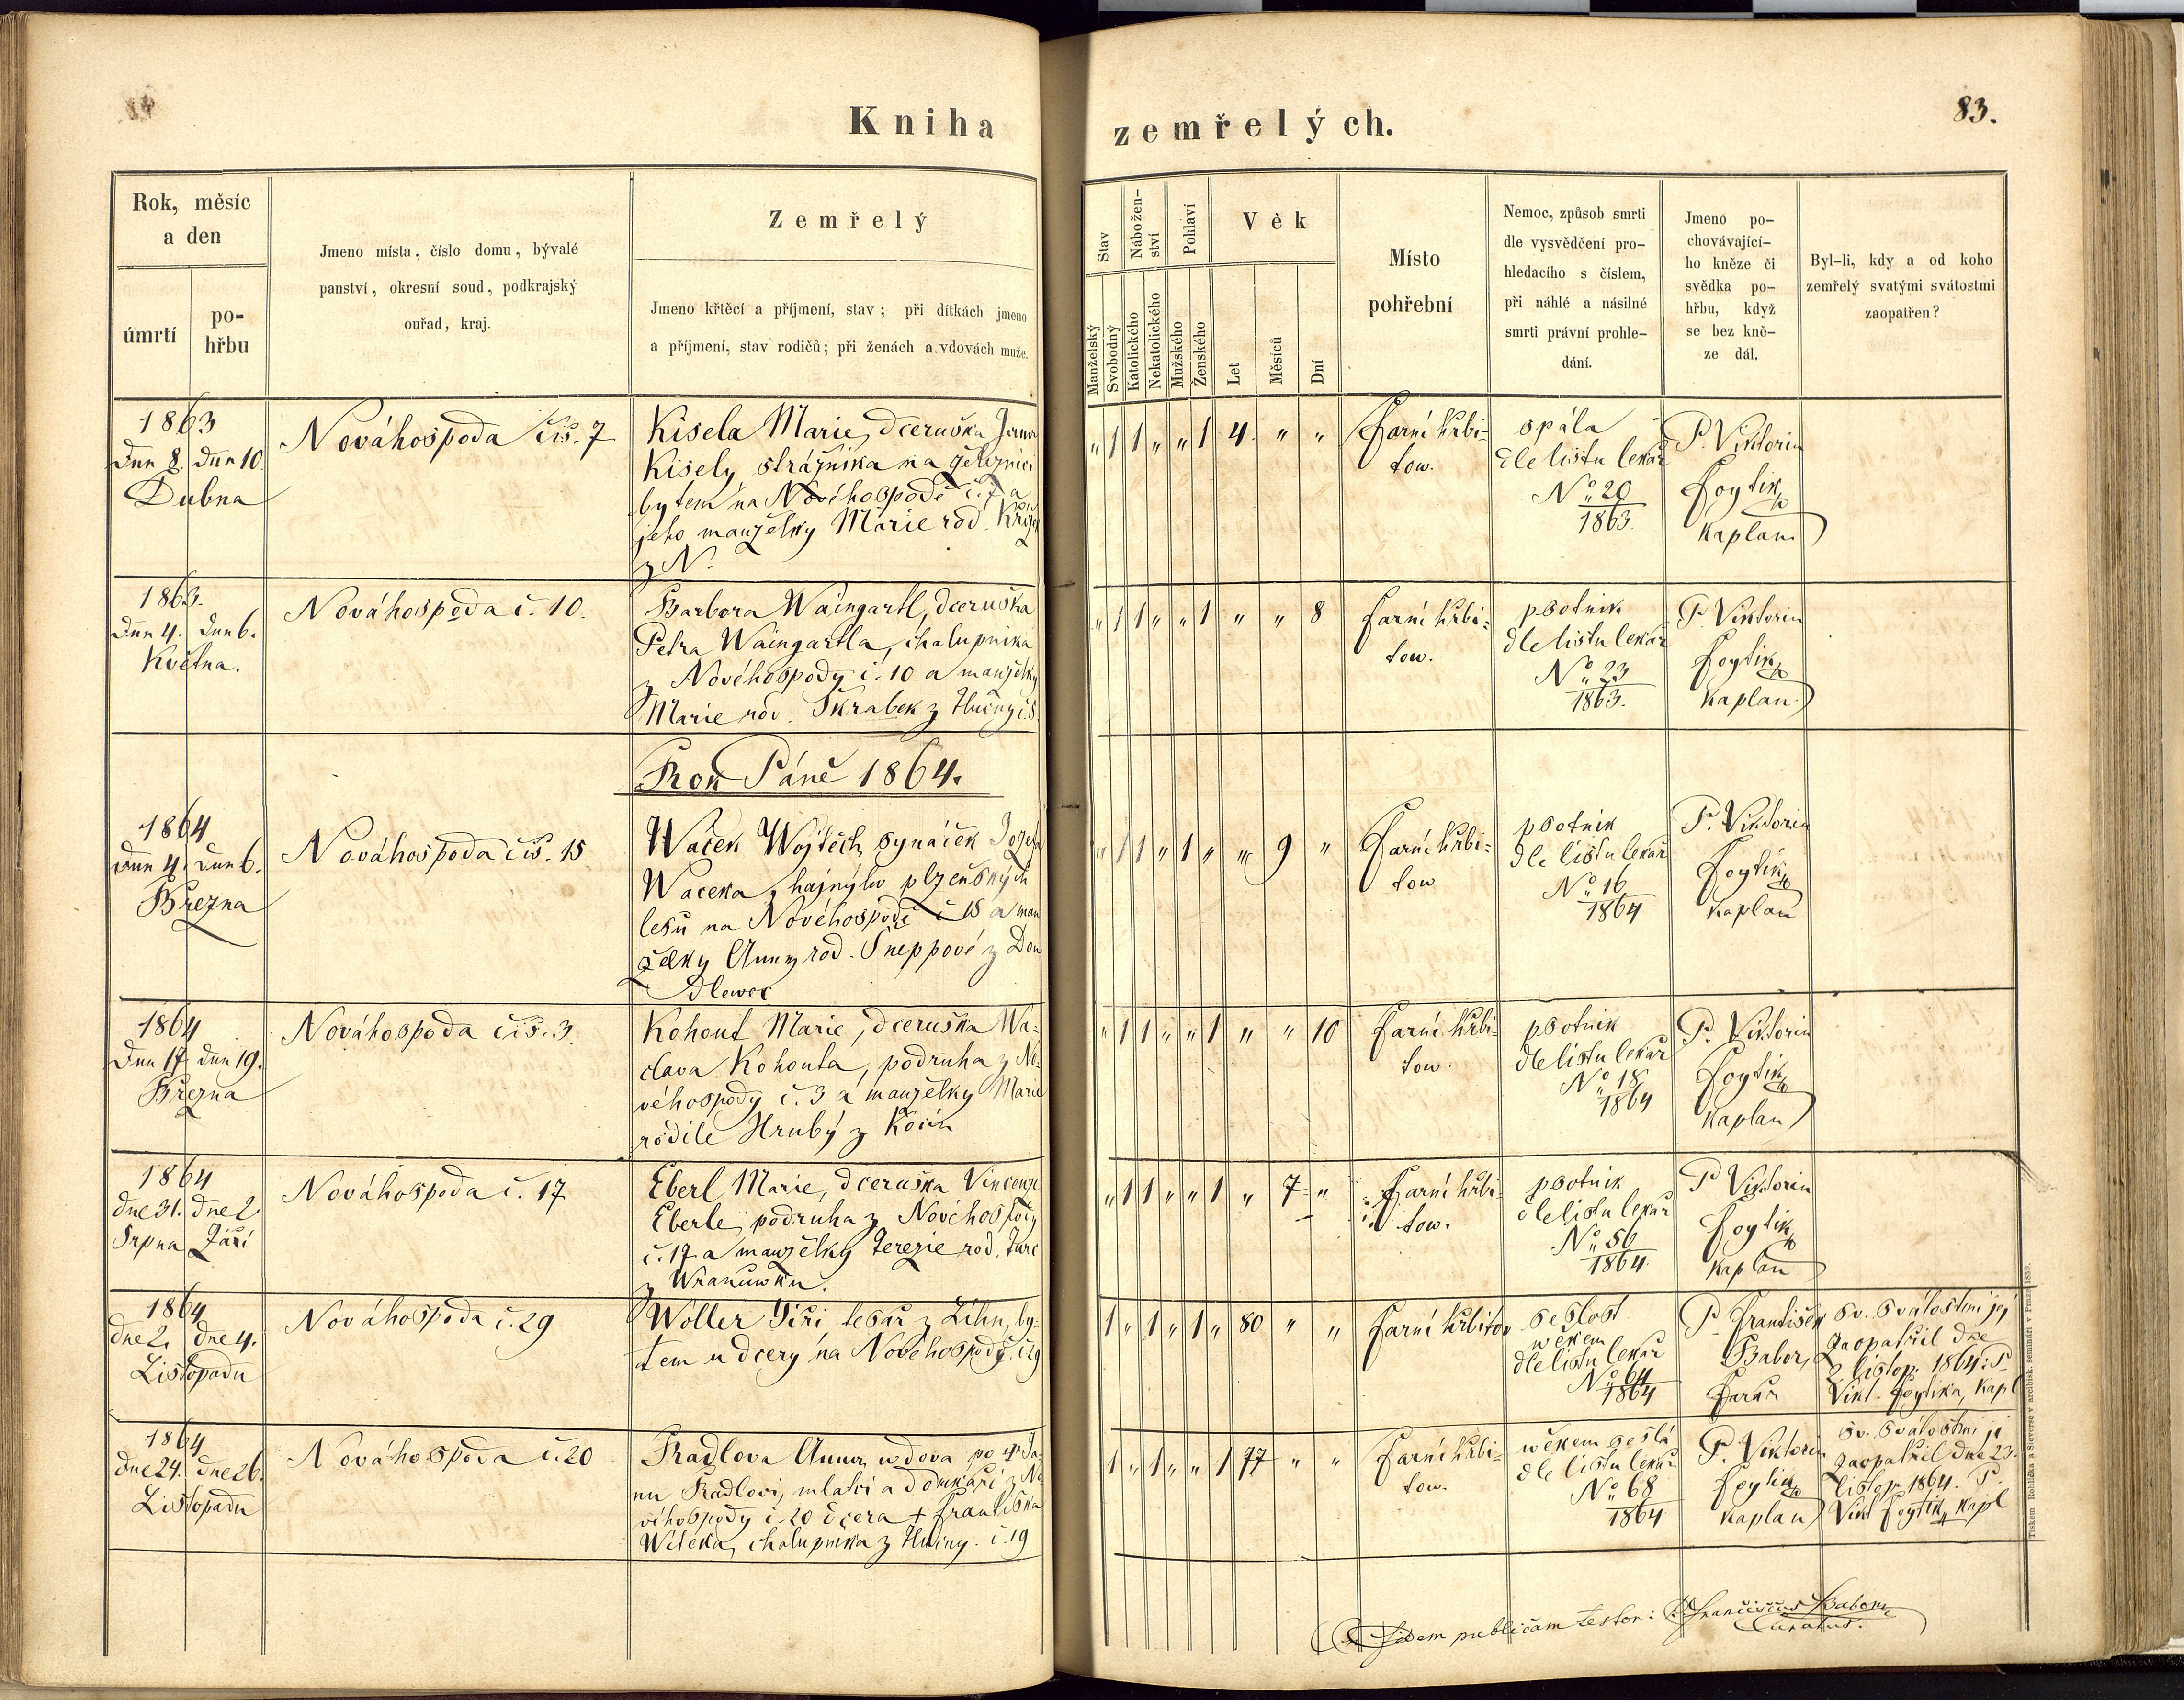 Kniha zemřelých.
83.
Rok, měsíc
a den
úmrtí
po-
hřbu
Jmeno místa, číslo domu, bývalé
panství, okresní soud, podkrajský
ouřad, kraj.
Zemřelý
Jmeno křtěcí a příjmení, stav; při dítkách jmeno
a příjmení, stav rodičů; při ženách a vdovách muže.
Stav
Manželský
Svobodný
Nábožen-
ství
Katolického
Nekatolického
Pohlaví
Mužského
Ženského
Věk
Let
Měsíců
Dní
Místo
pohřební
Nemoc, způsob smrti
dle vysvědčení pro-
hledacího s číslem,
při náhlé a násilné
smrti právní prohle-
dání.
Jmeno po-
chovávající-
ho kněze či
svědka po-
hřbu, když
se bez kně-
ze dál.
Byl-li, kdy a od koho
zemřelý svatými svátostmi
zaopatřen?
1863
dne 8. dne 10.
Dubna
Nováhospoda čís. 7
Kisela Marie, dceruška
Kisely strážníka na železnici
bytem na Novéhospodě č. 7 a
jeho manželky Marie rod.
z N.
" 1 1 " " 1 4. " "
Farní hřbi-
tow.
spála
dle listu lekař
No. 20
1863.
P. Viktorin
Foytík
kaplan
1863.
dne 4. dne 6.
Května.
Nováhospoda č. 10.
Barbora Waingartl, dceruška
Petra Waingartla, chalupníka
z Novéhospody č. 10 a manželky
Marie rod. Škrabek z Tlučny č. 8.
" 1 1 " " 1 " " 8
farní hřbi-
tow.
psotník
dle listu lekař
No. 23
1863.
P. Viktorin
Foytík
kaplan
Rok Páně 1864.
1864
dne 4. dne 6.
Března
Nováhospoda čís. 15
Waček Wojtěch, synáček Josefa
Wačeka, hajného plzeňských
lesů na Novéhospodě č 15 a man
želky Anny rod. Šneppové z Dou
dlewec
" 1 1 " 1 " " 9 "
Farní hřbi-
tow
psotník
dle listu lekař
No. 16
1864
P. Viktorin
Foytík
kaplan
1864
dne 17 dne 19.
Března
Nováhospoda čís. 3.
Kohout Marie, dceruška Wa-
clava Kohouta, podruha z No-
véhospody č. 3 a manželky Marie
rodilé Hrubý z
" 1 1 " " 1 " " 10
farní hřbi-
tow.
psotník
dle listu lekař
No. 18
1864
P. Viktorin
Foytík
kaplan
1864
dne 31. dne 2
Srpna Září
Nováhospoda č. 17
Eberl Marie, dceruška Vincence
Eberle, podruha z Novéhospody
č. 17 a manželky Terezie rod.
z Wranuwka.
" 1 1 " " 1 " 7 "
Farní hřbi-
tow.
psotník
dle listu lekař
No. 56
1864.
P. Viktorin
Foytík
kaplan
1864
dne 2. dne 4.
Listopadu
Nováhospoda č. 29
Woller Jiří tesař z Lihn, by-
tem u dcery na Novéhospodě. č. 29
1 " 1 " 1 " 80 " "
farní hřbitow
sešlost
wěkem
dle listu lekař
No. 64
1864
P. František
Babor,
Farář
Sv. Svátostmi jej
zaopatřil dne
2 listop. 1864: P.
Vikt. Foytík, kapl
1864
dne 24. dne 26.
Listopadu
Nováhospoda č. 20
Radlova Anna, wdova po † Ja-
nu Radlovi, mlatci a domkáři z No-
véhospody č. 20 dcera † Františka
Witeka, chalupníka z Tlučny. č. 19
1 " 1 " " 1 77 " "
Farní hřbi-
tow.
wěkem sešlá
dle listu lekař
No. 68
1864
P. Viktorin
Foytík
kaplan
Sv. Svátostmi ji
zaopatřil dne 23.
listop. 1864. P.
Vikt Foytík, kapl
fidem publicam testor: Franciscus Babor
Curatus.